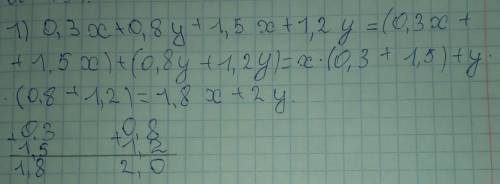 1) 0,3 x + 0,8 y + 1,5 x + 1,2 y = (0,3x +
+ 1,5 x) + (0,8y + 1,2y) = x · (0,3 + 1,5) + y ·
· (0,8 + 1,2) = 1,8 x + 2 y.
+ 0,3 + 0,8
1,5 1,2
1,8 2,0